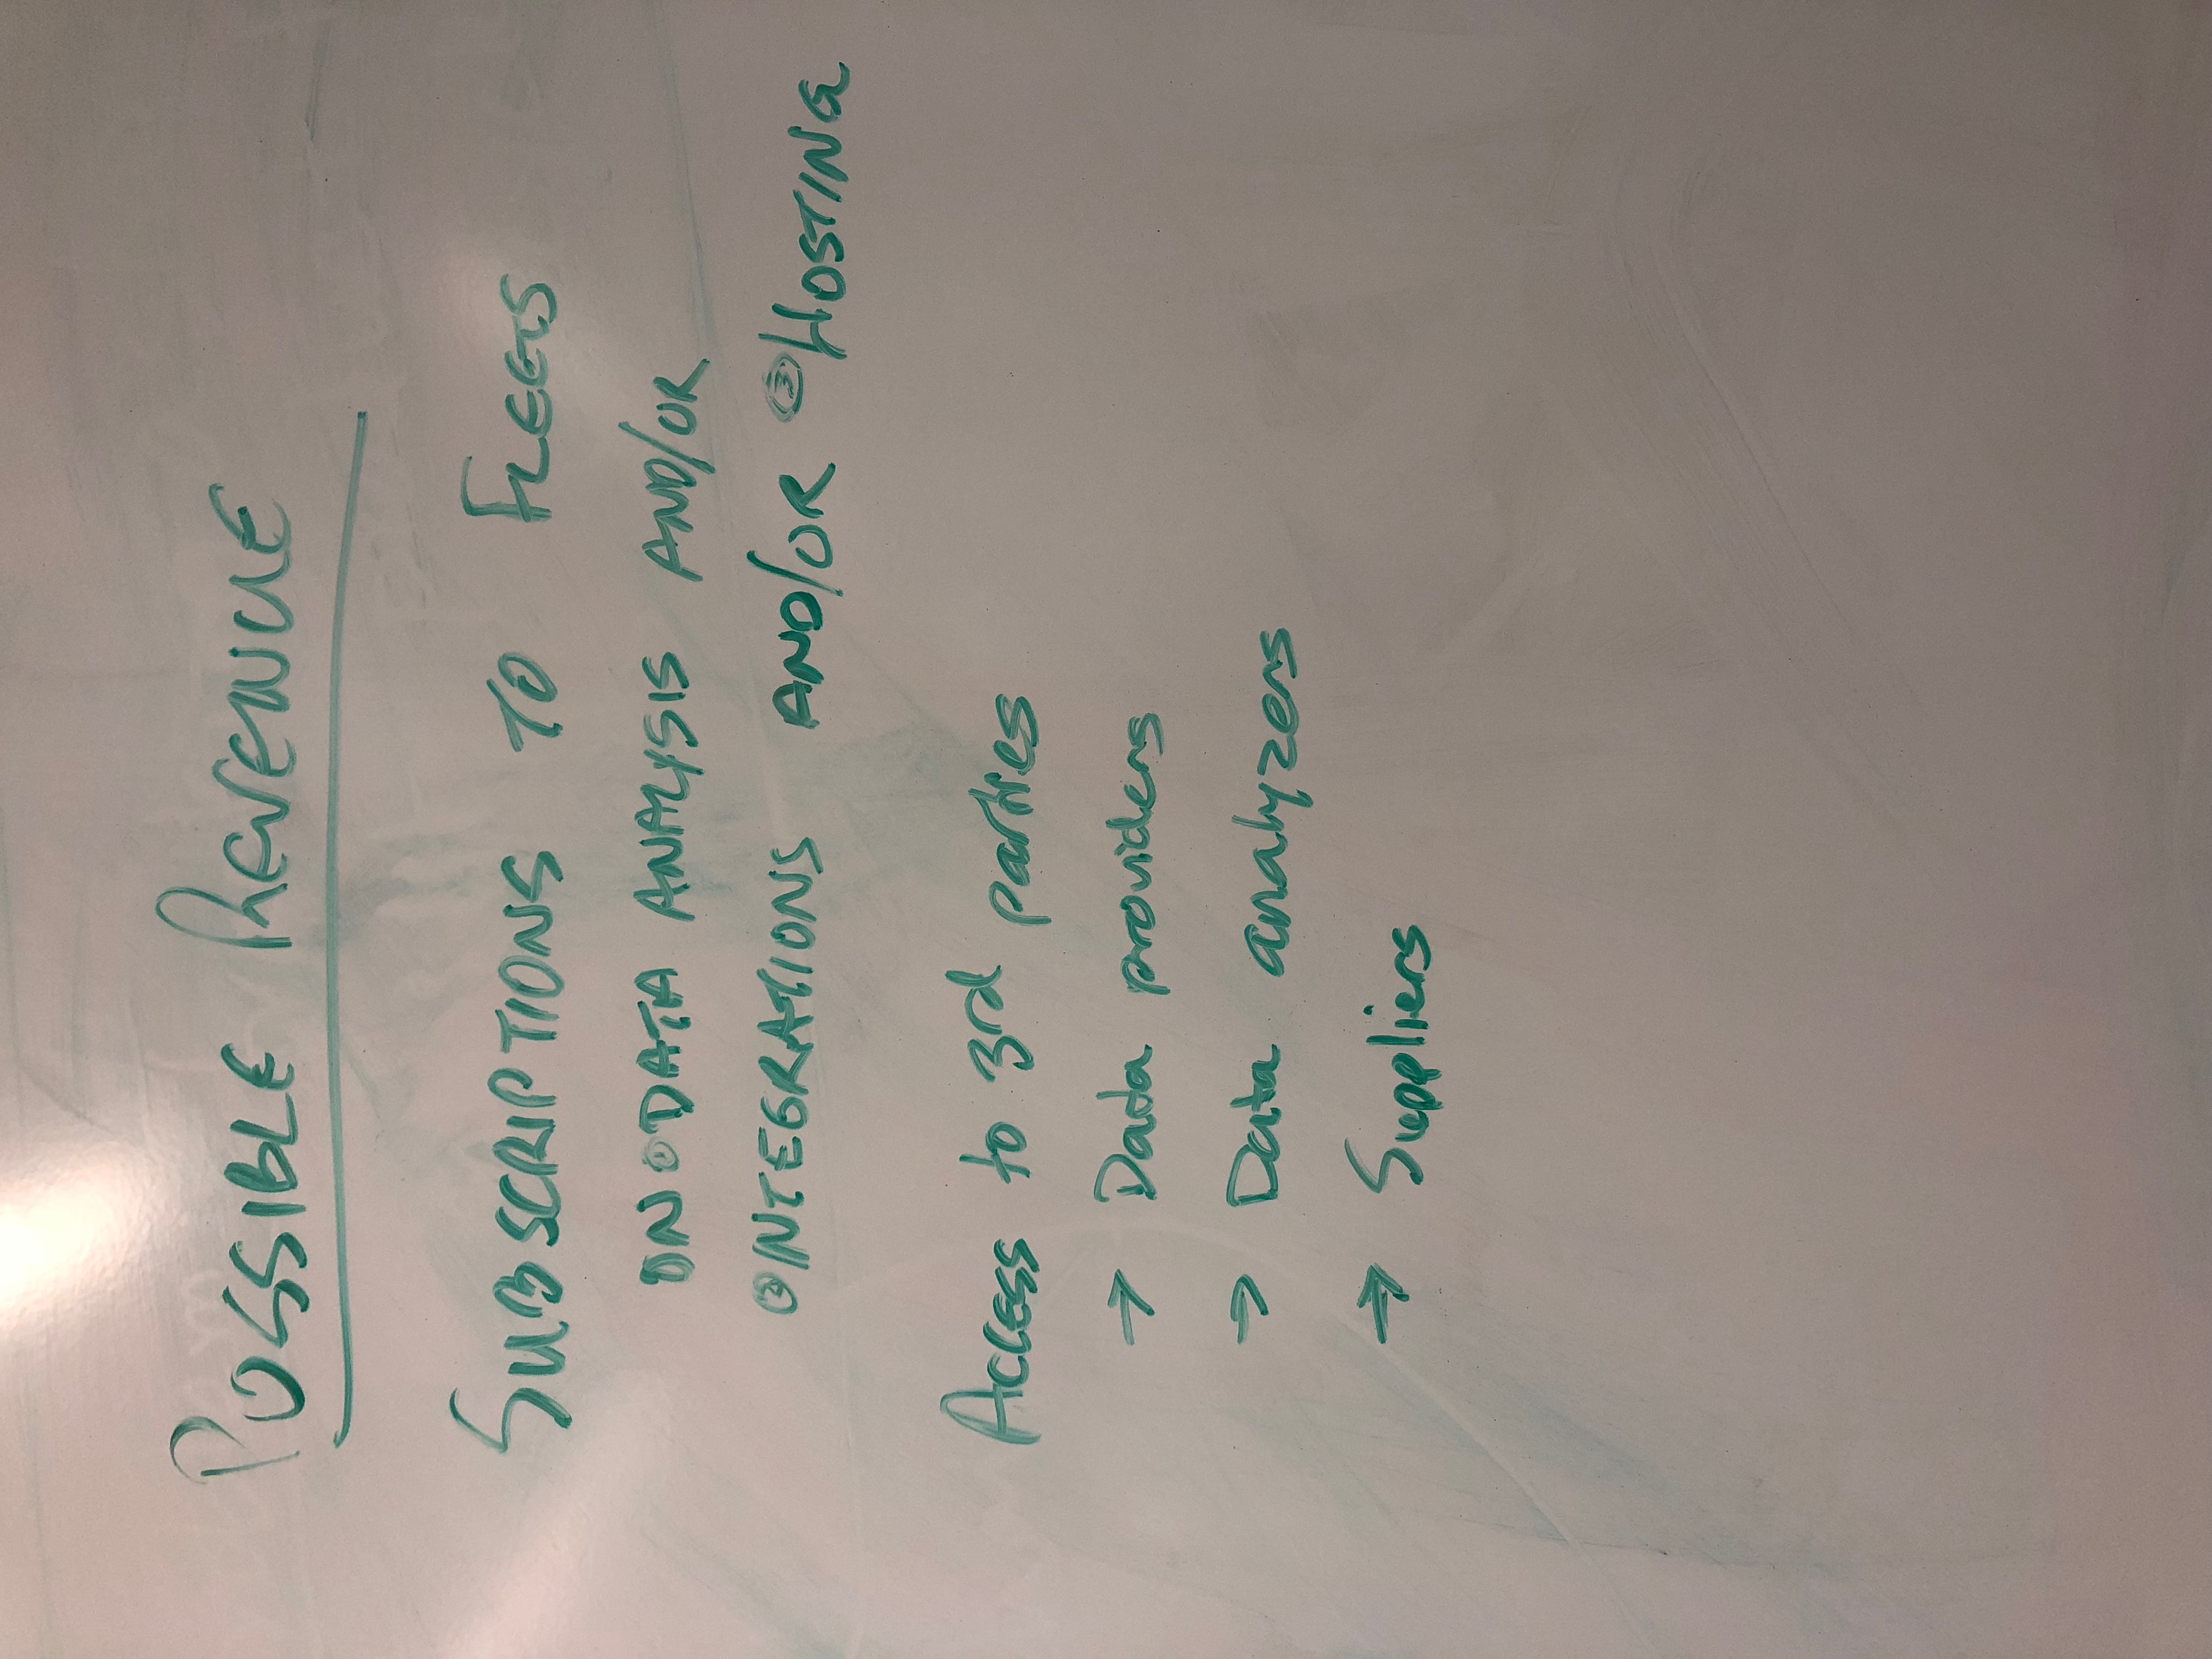 POSSIBLE REVENUE
SUBSCRIPTIONS TO FLEETS
ON ① DATA ANALYSIS AND/OR
② INTEGRATIONS AND/OR ③ HOSTING
ACCESS to 3rd parties
→ Data providers
→ Data analyzers
→ Suppliers